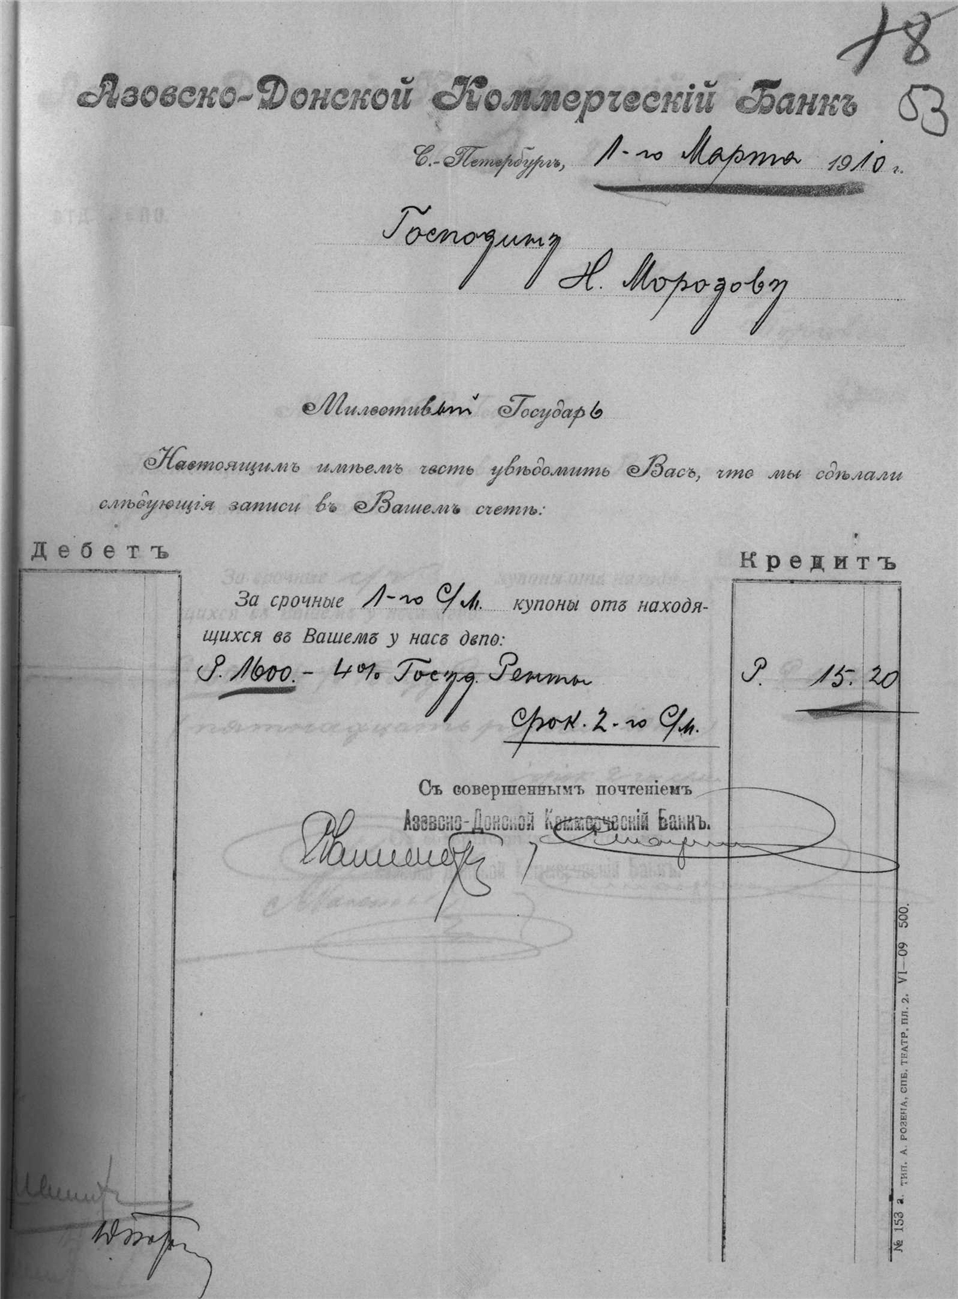 18
53
Азовско-Донской Коммерческій Банкъ
С.-Петербургъ, 1-го Марта 1910 г.
Господину
Н. Морозову
Милостивый Государь
Настоящимъ имѣемъ честь увѣдомить Васъ, что мы сдѣлали
слѣдующія записи въ Вашемъ счетѣ:
Дебетъ
Кредитъ
За срочные 1-го С/М. купоны отъ находя-
щихся въ Вашемъ у насъ депо:
Р. 1600.- 4% Госуд. Ренты
Р. 15.20
срок. 2-го С/М.
Съ совершеннымъ почтеніемъ
Азовско-Донской Коммерческій Банкъ.
№ 153 а. ТИП. А. РОЗЕНА, СПБ. ТЕАТР. ПЛ. 2. VI—09 500.